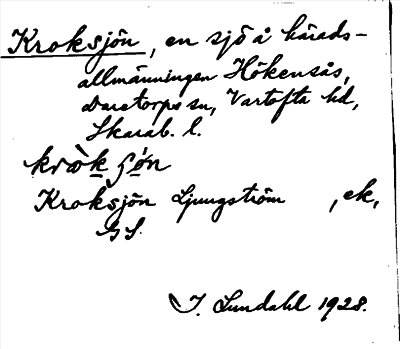 Kroksjön, en sjö å härads-
allmänningen Hökensås,
Daretorps sn, Vartofta hd,
Skarab. l.
Kroksjön Ljungström, ek,
GS.
I. Lundahl 1928.